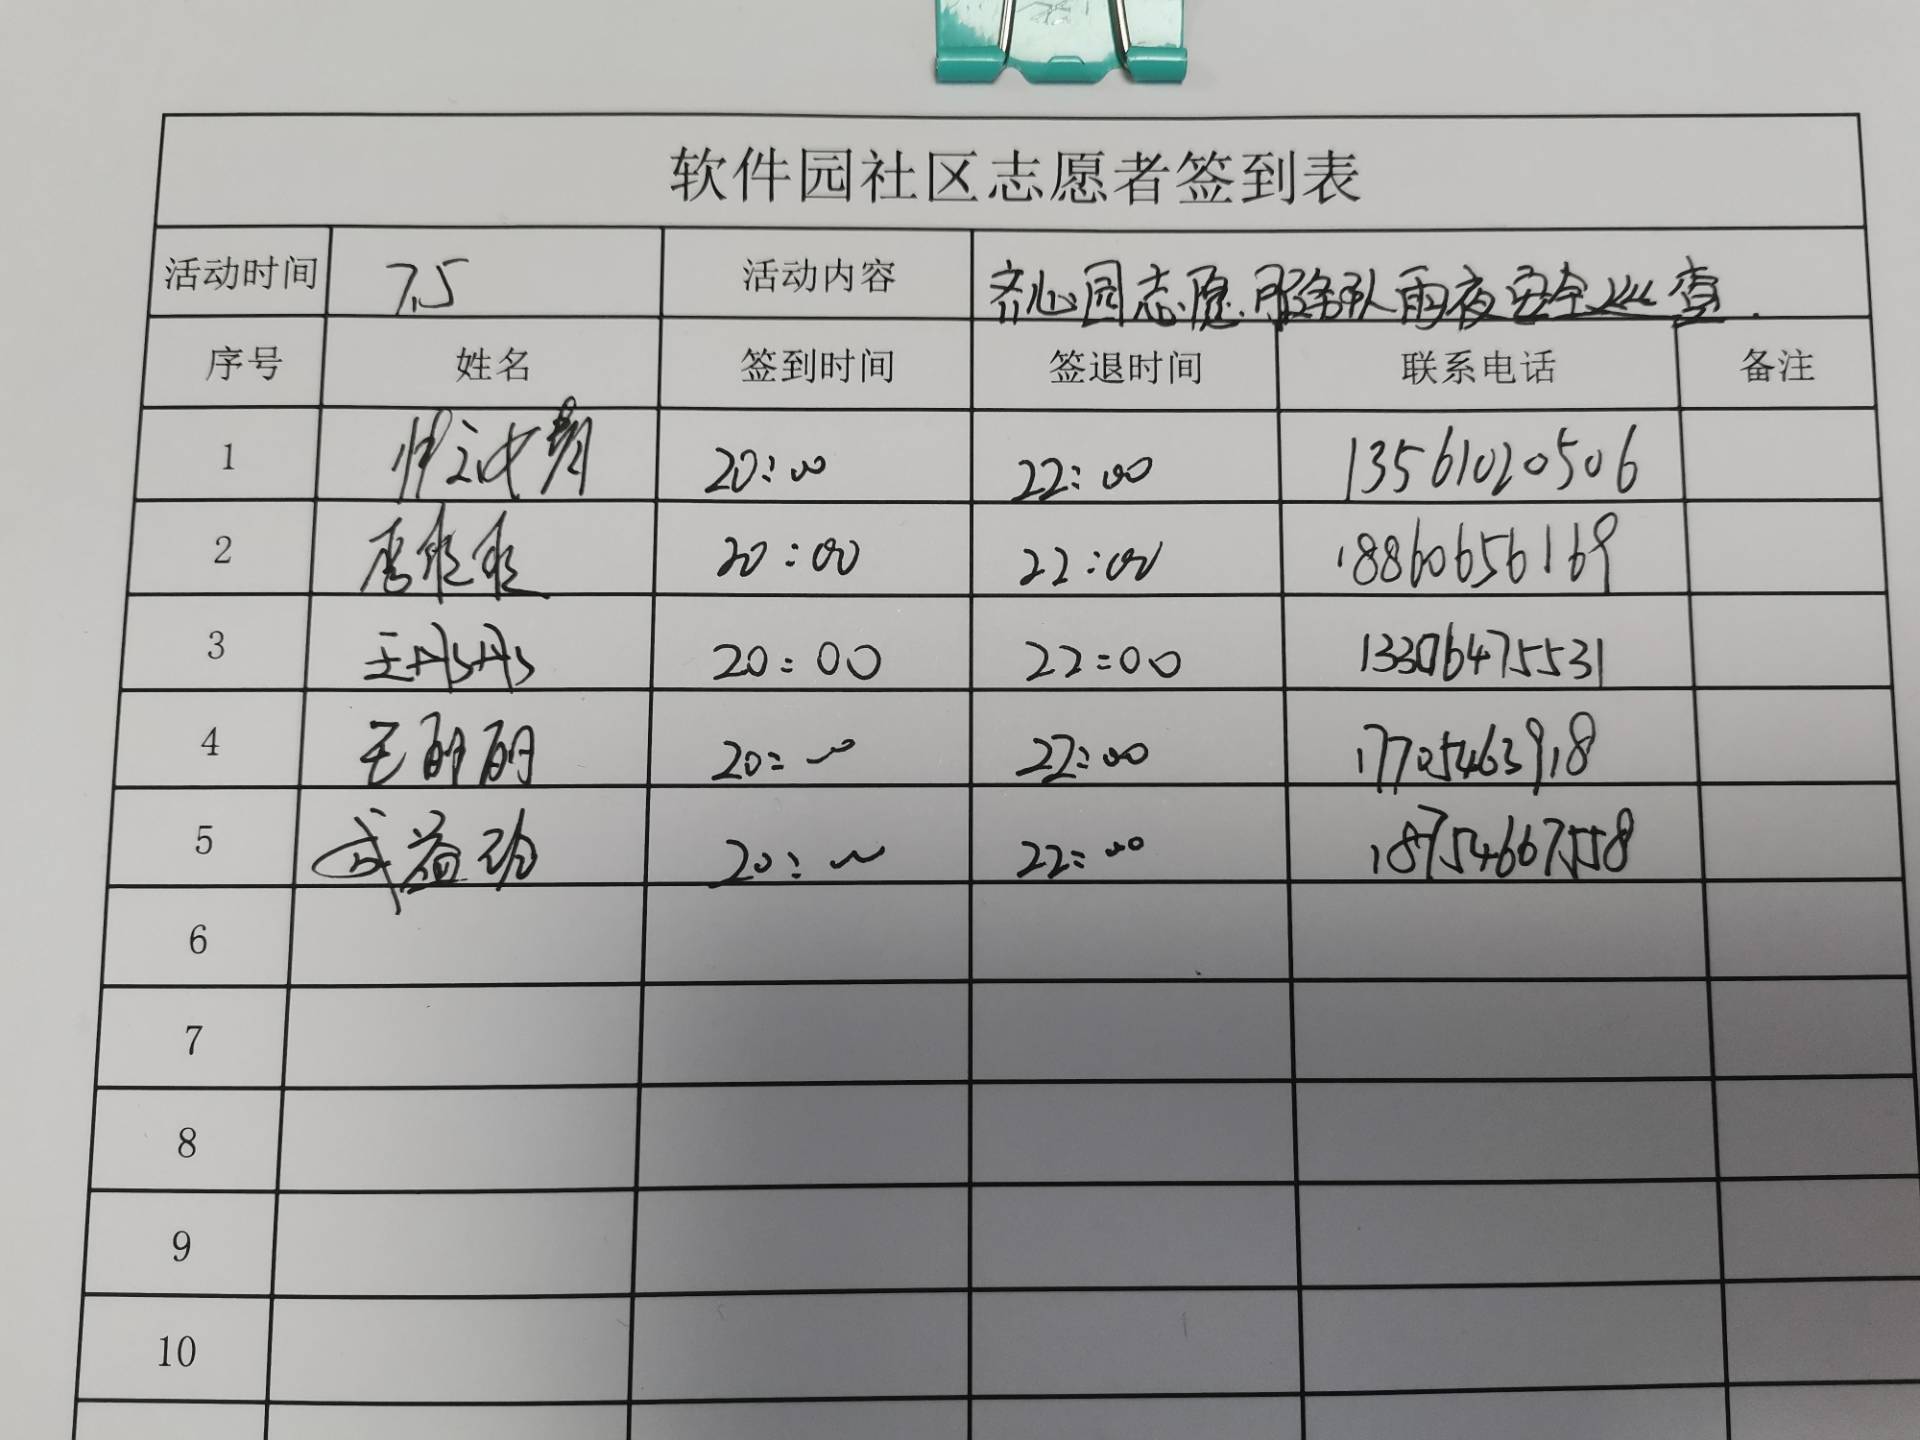 软件园社区志愿者签到表
活动时间 7.5 活动内容 齐心园志愿服务队雨夜安全巡查.
序号 姓名 签到时间 签退时间 联系电话 备注
1 20:00 22:00 13561020506
2 20:00 22:00 18860656169
3 王彤彤 20:00 22:00 13306475531
4 王丽丽 20:00 22:00 17705463918
5 20:00 22:00 18754667558
6
7
8
9
10